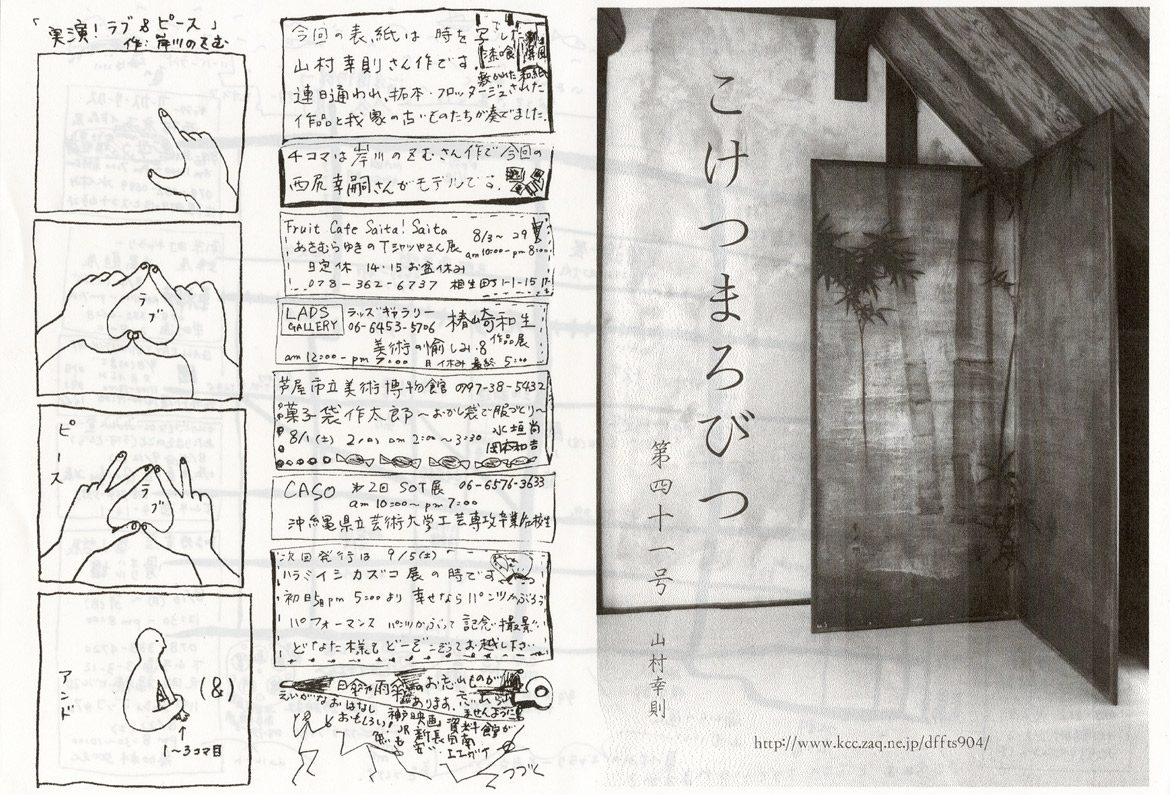 「実演！ラブ&ピース」
作：岸川のぞむ
ラブ
ピース
ラブ
アンド
(&)
↑
1〜3コマ目
今回の表紙は時を写した
山村幸則さん作です。漆喰
敷かれた和紙
連日通われ、拓本・フロッタージュされた
作品と我家の古いものたちが奏でました。
4コマは岸川のぞむさん作で今回の
西尻幸嗣さんがモデルです。
Fruit Cafe Saita! Saita
あさむらゆきのTシャツやさん展 8/3〜29
am10:00-pm8:00
日定休 14・15お盆休み
078-362-6737 相生町1-1-15
LADS GALLERY ラッズギャラリー
06-6453-5706 椿崎和生
美術の愉しみ・8 作品展
am12:00-pm7:00 日休み 最終5:00
芦屋市立美術博物館 0797-38-5432
菓子袋作太郎〜おかし袋で服づくり〜
8/1(土) 2(日) am 2:00〜3:30 水垣尚
岡本和吉
CASO 第2回 SOT展 06-6576-3633
am10:00〜pm7:00
沖縄県立芸術大学工芸専攻卒業/在校生
次回発行は 9/5(土)
ハラミイシカズコ展の時です
初日5日pm5:00より 幸せならパンツかぶろう
パフォーマンス パンツかぶって記念撮影
どなた様もどーぞこぞってお越し下さい
日傘や雨傘のお忘れものが
あります。忘れ
ませんように
えいがなおはなし
おもしろい！神戸映画資料館が
JR新長田南
つづく
こけつまろびつ
第四十一号
山村幸則
http://www.kcc.zaq.ne.jp/dffts904/